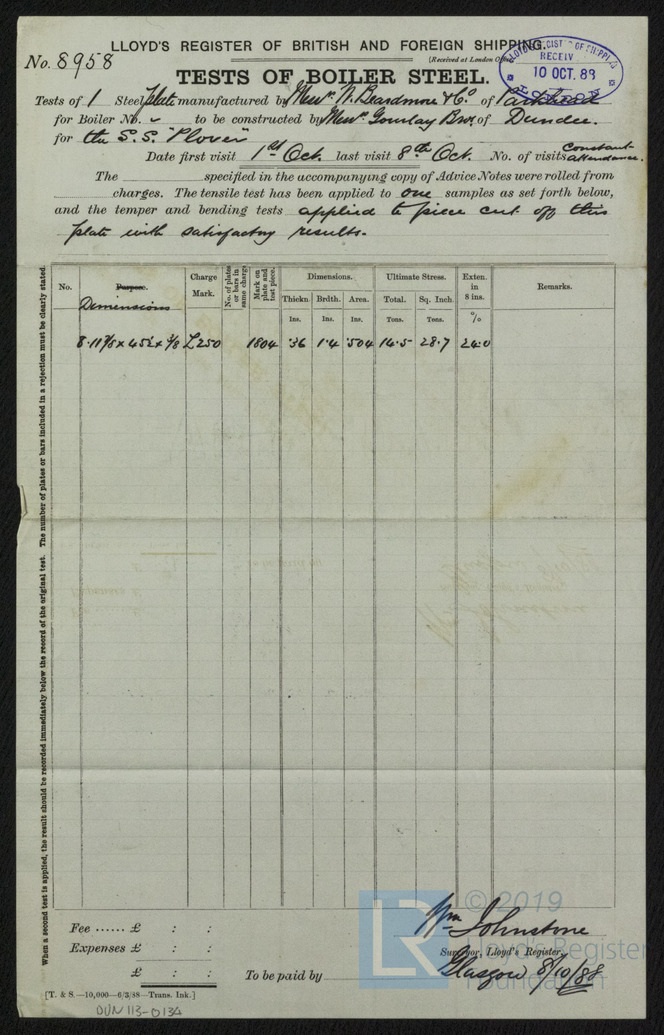 LLOYD'S REGISTER OF BRITISH AND FOREIGN SHIPPING.
No. 8958
[Received at London
RECEIV
10 OCT. 88
TESTS OF BOILER STEEL.
Tests of 1 Steel plate manufactured by Messrs. W. Beardmore & Co. of Parkhead
for Boiler No. - to be constructed by Messrs. Gourlay Bros. of Dundee.
for the S.S. "Plover"
Date first visit 1st Oct. last visit 8th Oct. No. of visits Constant attendance.
The specified in the accompanying copy of Advice Notes were rolled from
charges. The tensile test has been applied to one samples as set forth below,
and the temper and bending tests applied to piece cut off this
plate with satisfactory results.
When a second test is applied, the result should be recorded immediately below the record of the original test. The number of plates or bars included in a rejection must be clearly stated.
No. Purpose. Charge Mark. No. of plates or bars in same charge Mark on plate and test piece. Dimensions. Ultimate Stress. Exten. in 8 ins. Remarks.
Dimensions Thickn. Brdth. Area. Total. Sq. Inch.
Ins. Ins. Ins. Tons. Tons. %
8·11⅞ x 45½ x ⅜ L250 1804 ·36 1·4 ·504 14·5 28·7 24·0
Fee ...... £ : :
Expenses £ : :
£ : :
To be paid by
Wm Johnstone
Surveyor, Lloyd's Register,
Glasgow 8/10/88
[T. & S.—10,000—6/3/88—Trans. Ink.]
DUN 113-0134
LR
© 2019
Lloyd's Register
Foundation